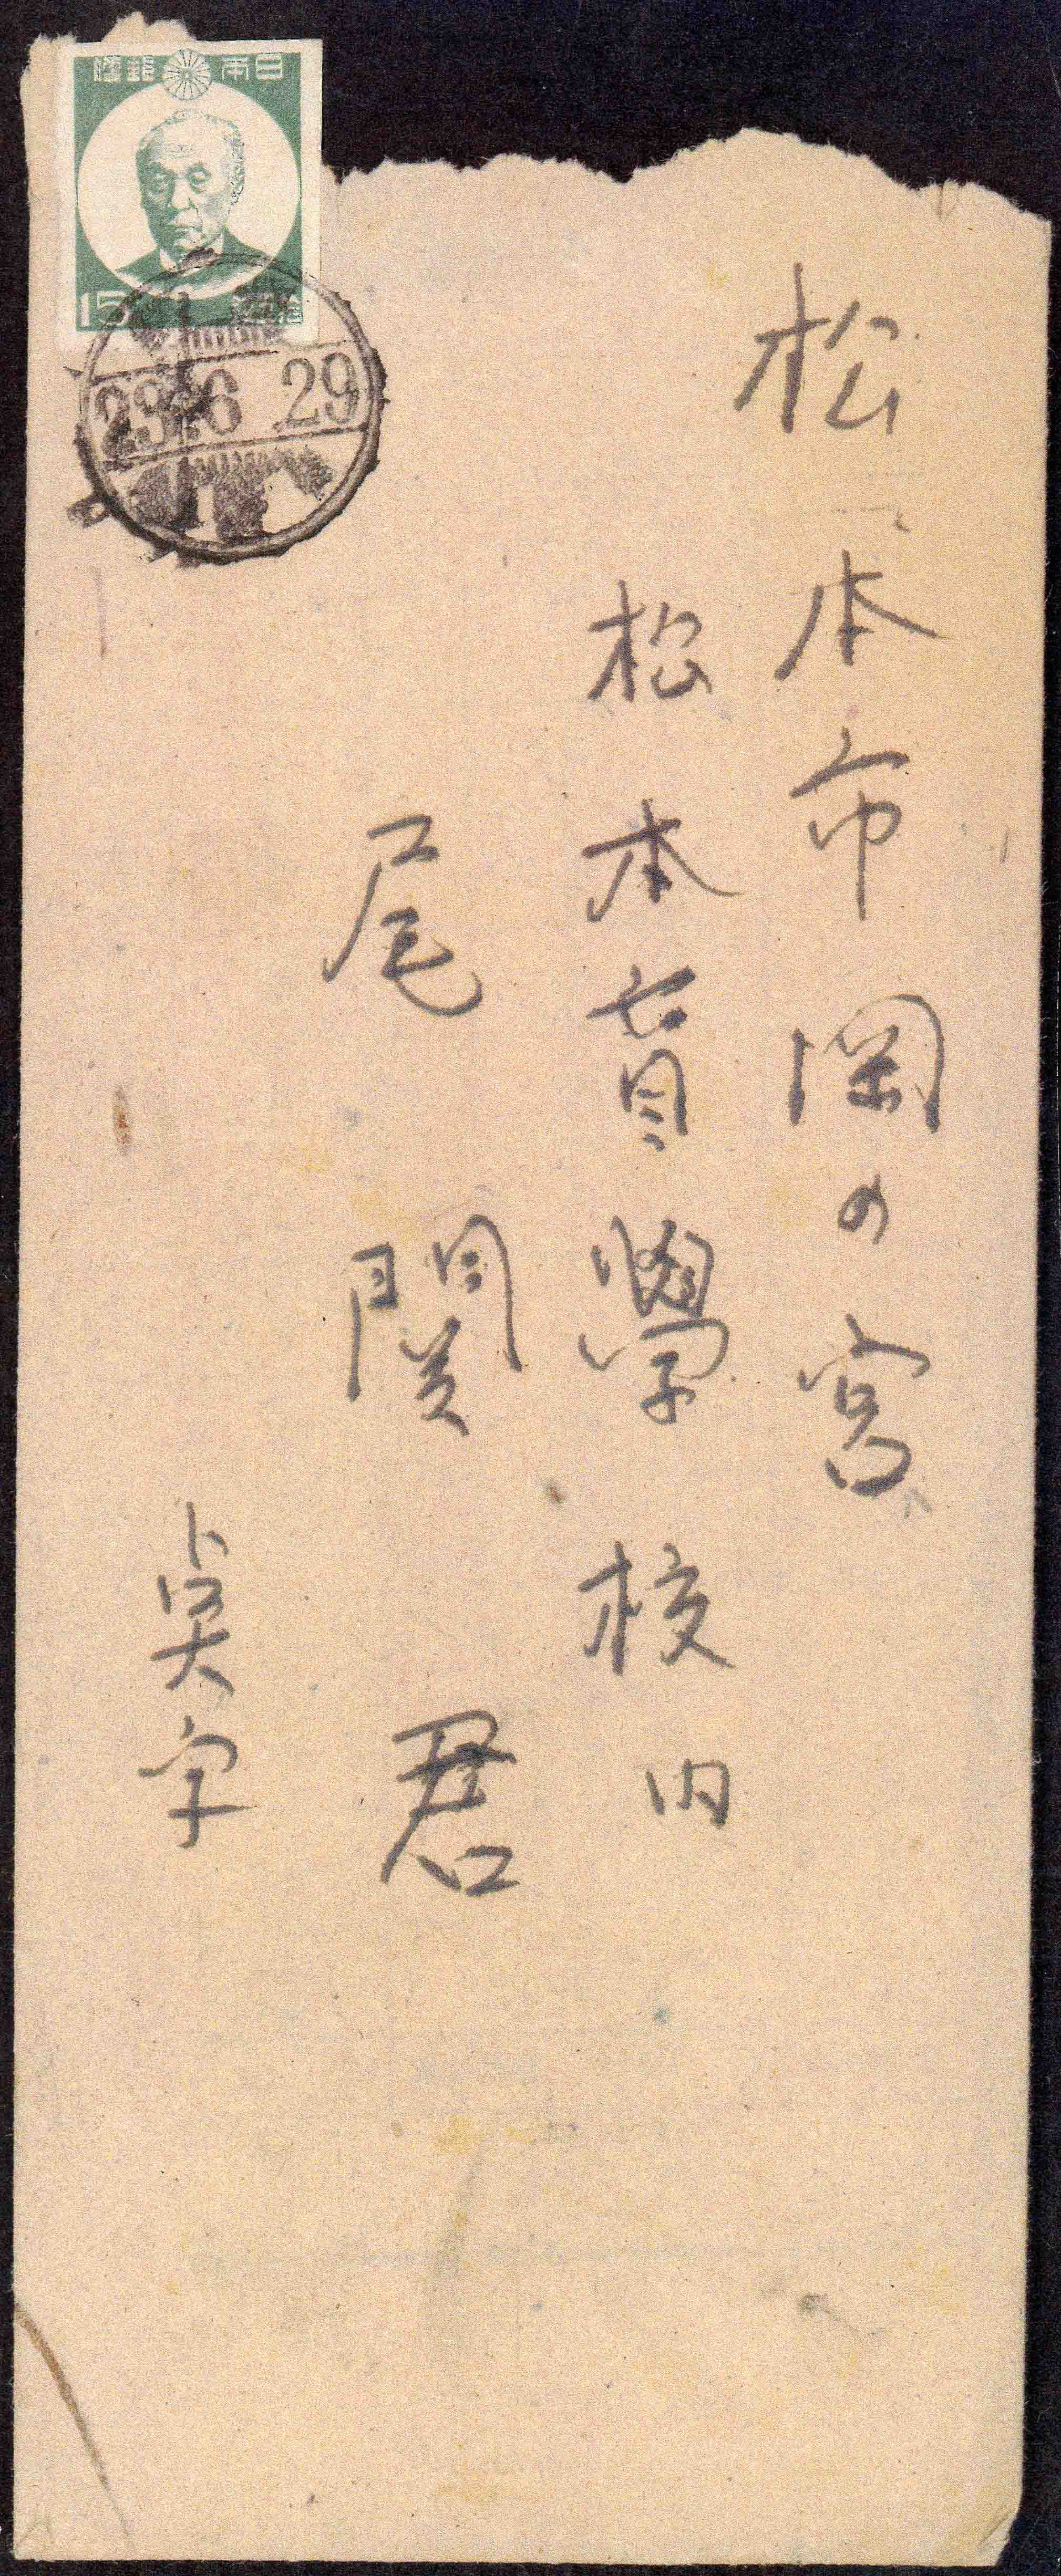 日本郵便
15
23.6.29
松本市岡の宮
松本盲學校内
尾関君
奌字